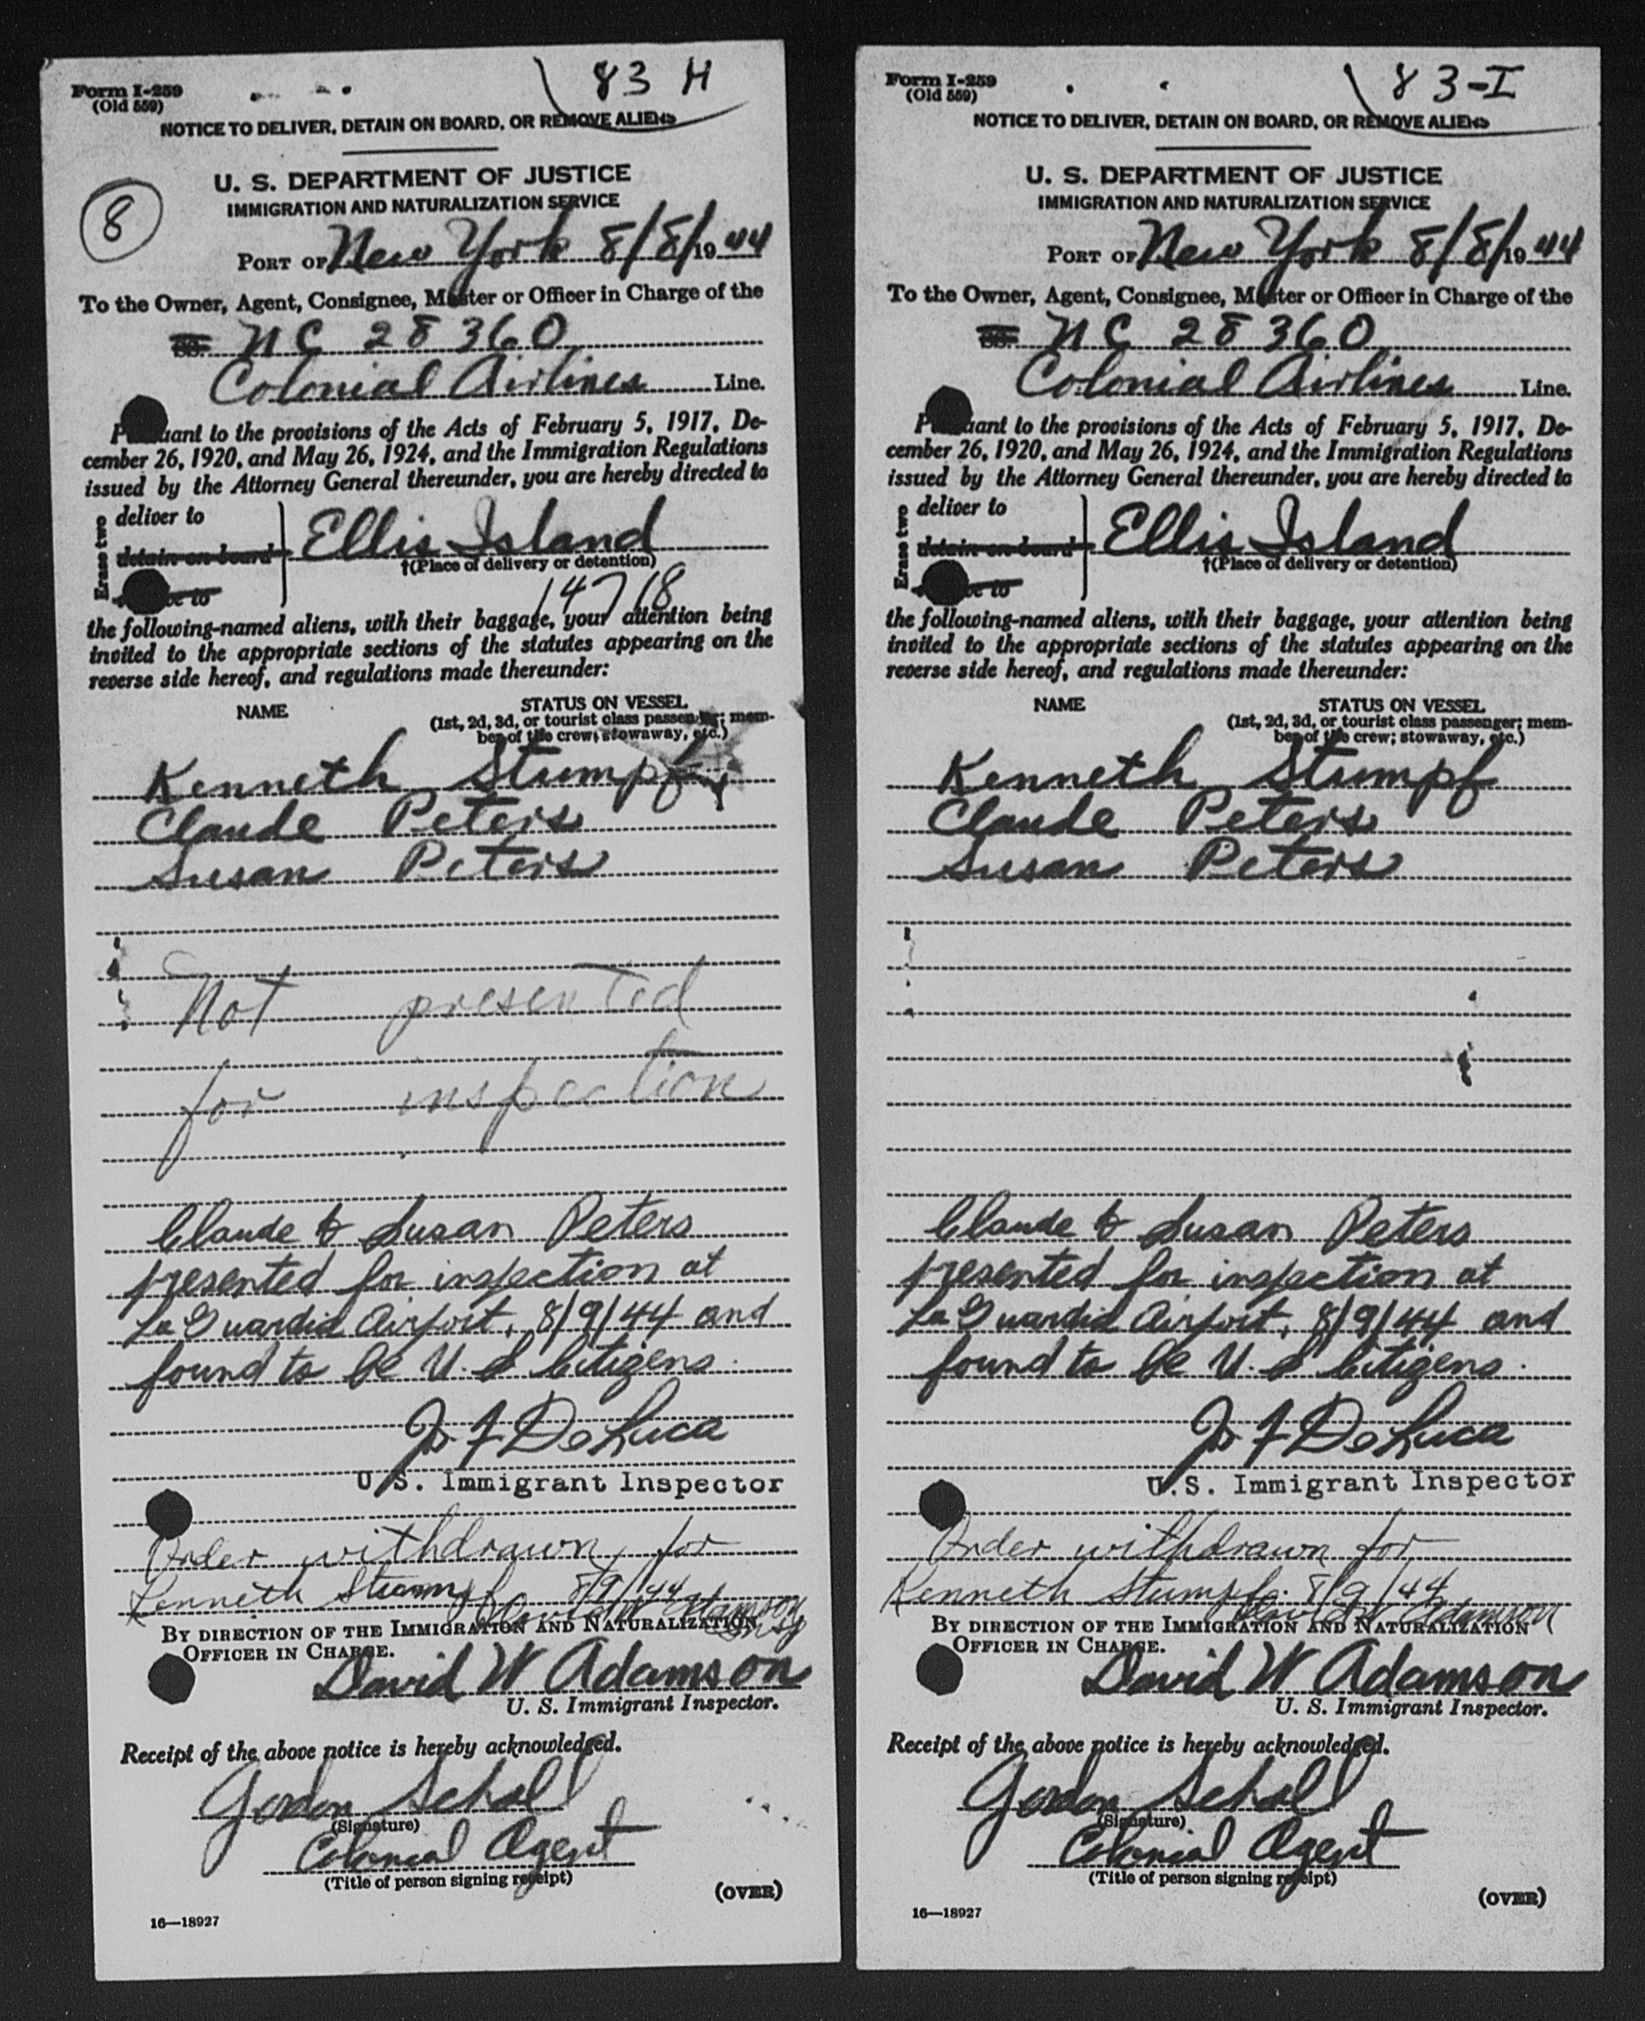 Form I-259
(Old 559)
83 H
NOTICE TO DELIVER, DETAIN ON BOARD, OR REMOVE ALIENS
8
U. S. DEPARTMENT OF JUSTICE
IMMIGRATION AND NATURALIZATION SERVICE
PORT OF New York 8/8/1944
To the Owner, Agent, Consignee, Master or Officer in Charge of the
SS. NC 28360
Colonial Airlines Line.
Pursuant to the provisions of the Acts of February 5, 1917, De-
cember 26, 1920, and May 26, 1924, and the Immigration Regulations
issued by the Attorney General thereunder, you are hereby directed to
Erase two
deliver to
detain on board
Ellis Island
†(Place of delivery or detention)
14718
the following-named aliens, with their baggage, your attention being
invited to the appropriate sections of the statutes appearing on the
reverse side hereof, and regulations made thereunder:
NAME STATUS ON VESSEL
(1st, 2d, 3d, or tourist class passenger; mem-
ber of the crew; stowaway, etc.)
Kenneth Stumpf
Claude Peters
Susan Peters
Not presented
for inspection
Claude & Susan Peters
presented for inspection at
La Guardia Airport, 8/9/44 and
found to be U. S Citizens.
J. F DeLuca
U.S. Immigrant Inspector
Order withdrawn for
Kenneth Stumpf 8/9/44
David W Adamson
BY DIRECTION OF THE IMMIGRATION AND NATURALIZATION
OFFICER IN CHARGE.
David W Adamson
U. S. Immigrant Inspector.
Receipt of the above notice is hereby acknowledged.
Gordon Scholl
(Signature)
Colonial Agent
(Title of person signing receipt)
(OVER)
16—18927
Form I-259
(Old 559)
83-I
NOTICE TO DELIVER, DETAIN ON BOARD, OR REMOVE ALIENS
U. S. DEPARTMENT OF JUSTICE
IMMIGRATION AND NATURALIZATION SERVICE
PORT OF New York 8/8/1944
To the Owner, Agent, Consignee, Master or Officer in Charge of the
SS. NC 28360
Colonial Airlines Line.
Pursuant to the provisions of the Acts of February 5, 1917, De-
cember 26, 1920, and May 26, 1924, and the Immigration Regulations
issued by the Attorney General thereunder, you are hereby directed to
Erase two
deliver to
detain on board
Ellis Island
†(Place of delivery or detention)
the following-named aliens, with their baggage, your attention being
invited to the appropriate sections of the statutes appearing on the
reverse side hereof, and regulations made thereunder:
NAME STATUS ON VESSEL
(1st, 2d, 3d, or tourist class passenger; mem-
ber of the crew; stowaway, etc.)
Kenneth Stumpf
Claude Peters
Susan Peters
Claude & Susan Peters
presented for inspection at
La Guardia Airport, 8/9/44 and
found to be U. S Citizens.
J. F DeLuca
U.S. Immigrant Inspector
Order withdrawn for
Kenneth Stumpf. 8/9/44
David W Adamson
BY DIRECTION OF THE IMMIGRATION AND NATURALIZATION
OFFICER IN CHARGE.
David W Adamson
U. S. Immigrant Inspector.
Receipt of the above notice is hereby acknowledged.
Gordon Scholl
(Signature)
Colonial Agent
(Title of person signing receipt)
(OVER)
16—18927